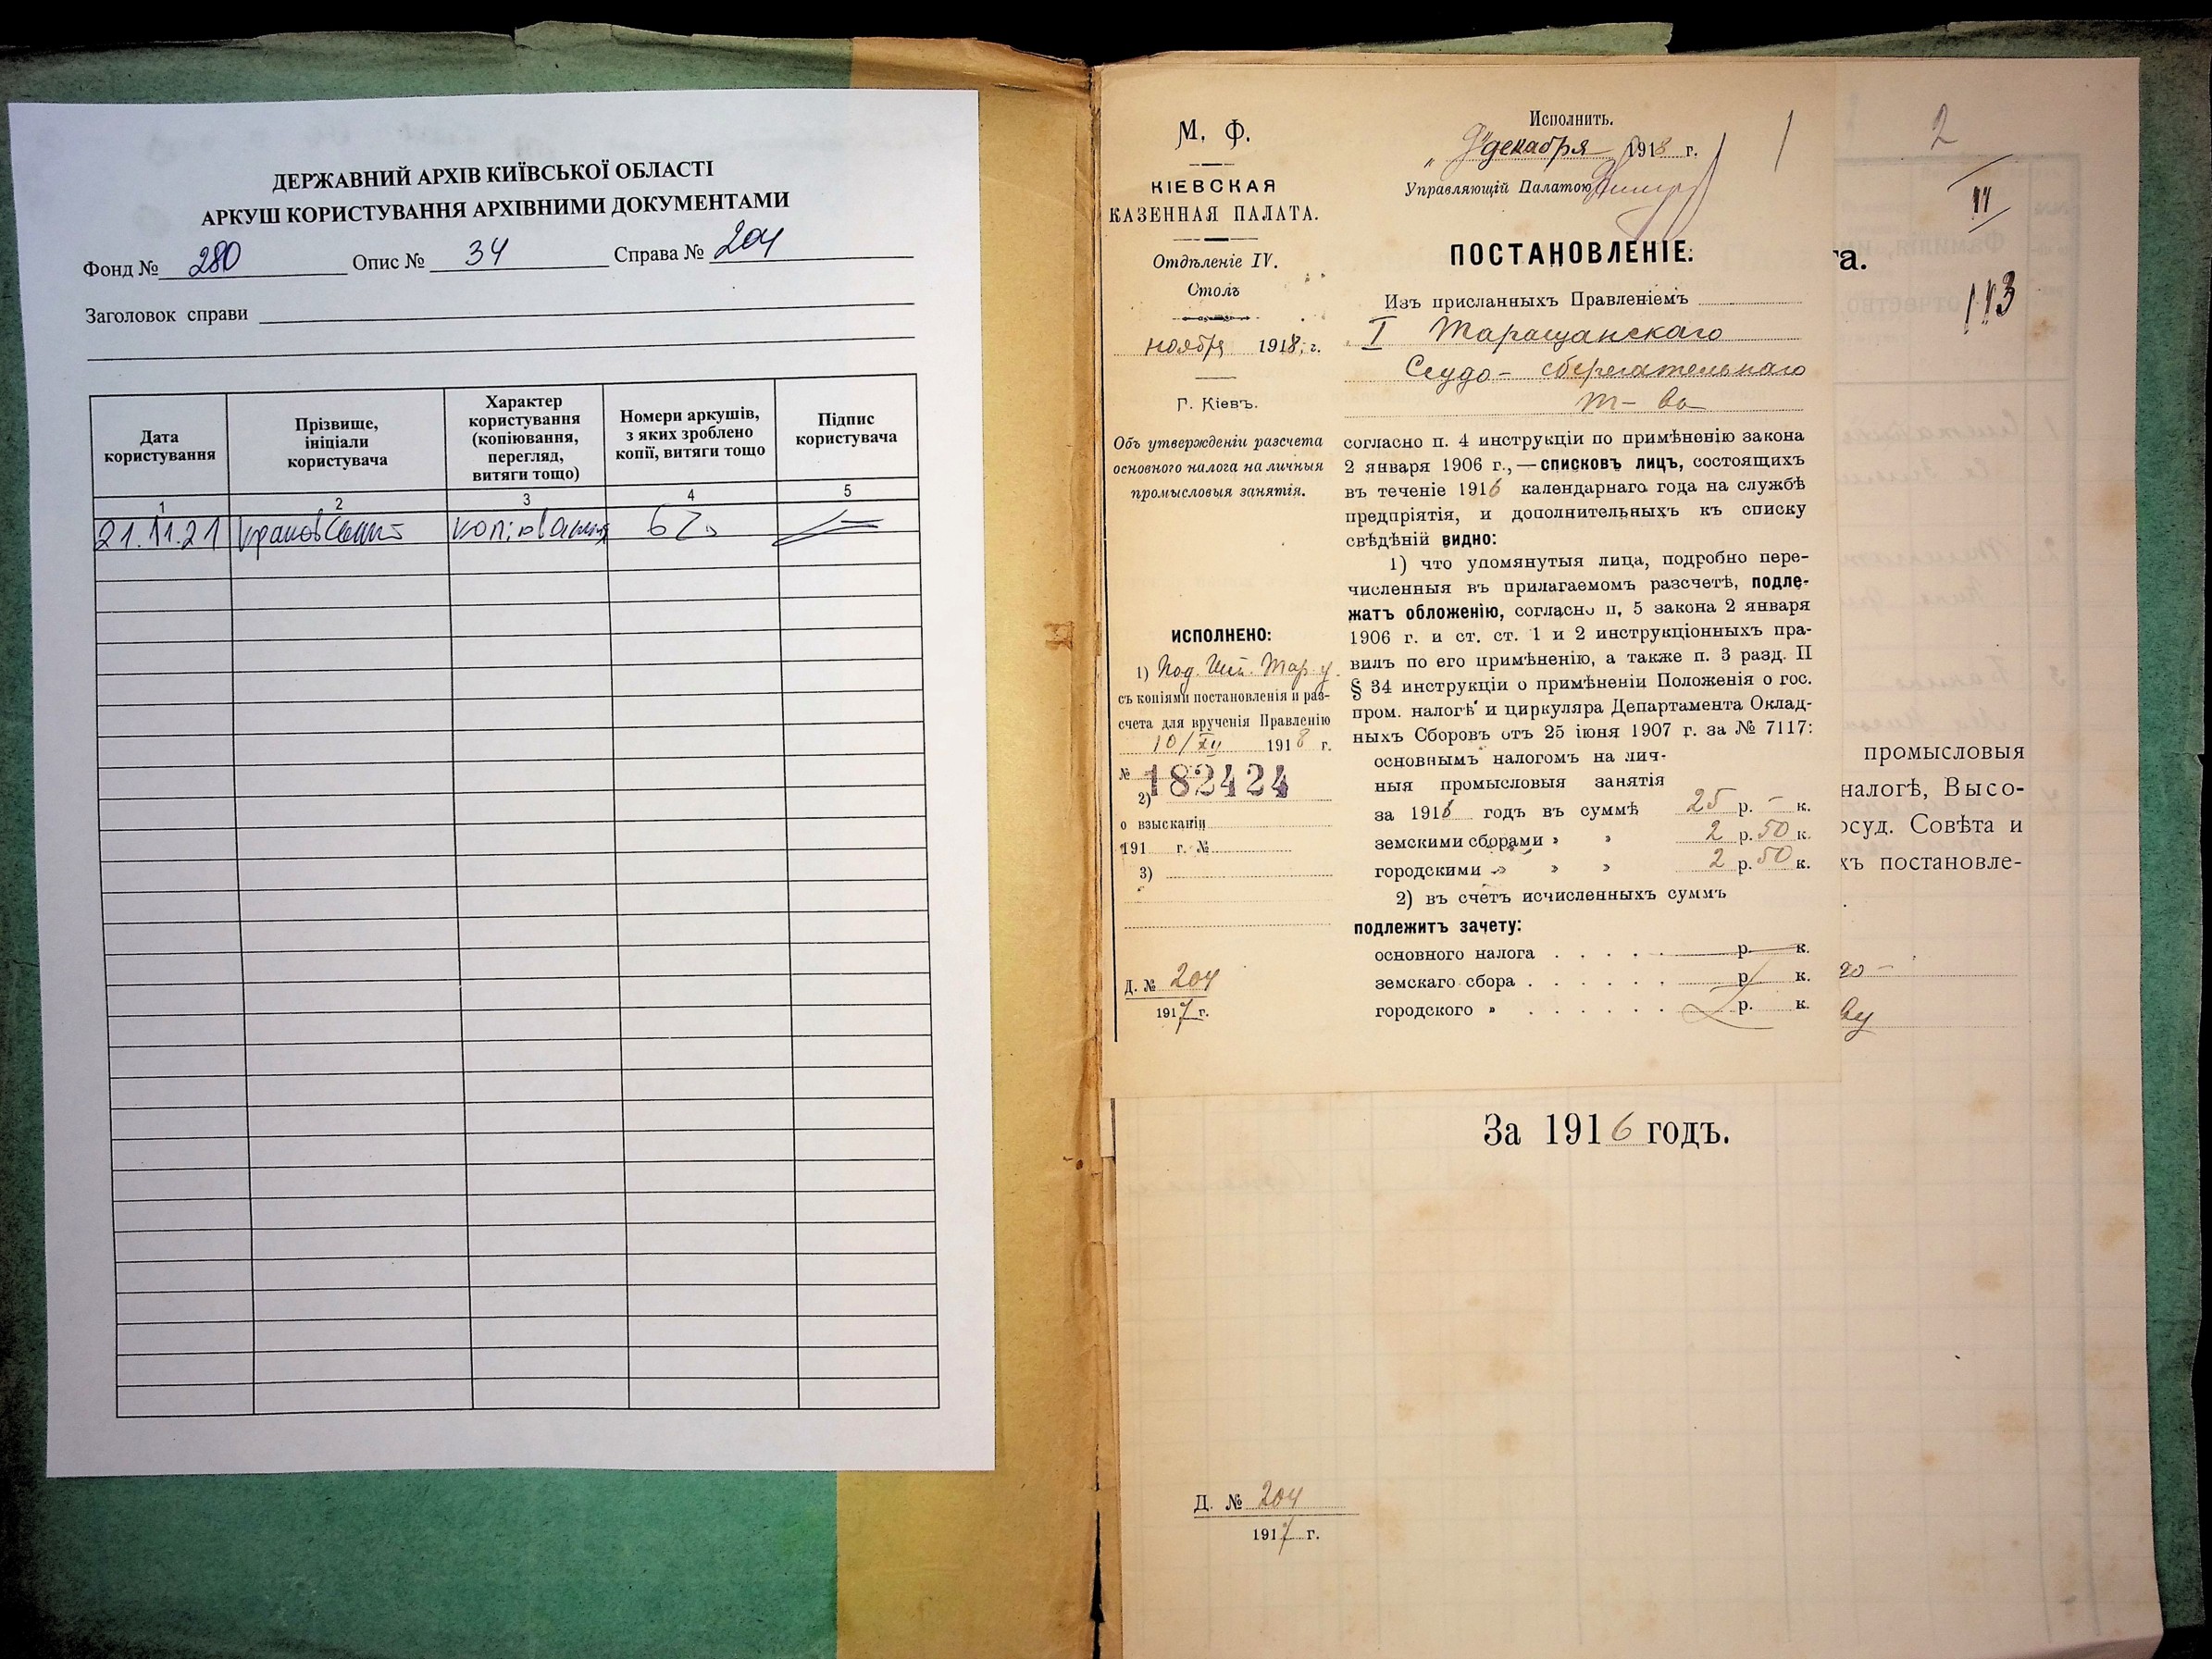 ДЕРЖАВНИЙ АРХІВ КИЇВСЬКОЇ ОБЛАСТІ
АРКУШ КОРИСТУВАННЯ АРХІВНИМИ ДОКУМЕНТАМИ
Фонд № 280 Опис № 34 Справа № 204
Заголовок справи
Дата користування
Прізвище, ініціали користувача
Характер користування (копіювання, перегляд, витяги тощо)
Номери аркушів, з яких зроблено копії, витяги тощо
Підпис користувача
1 2 3 4 5
21.11.21 копіювання
М. Ф.
КІЕВСКАЯ
КАЗЕННАЯ ПАЛАТА.
Отдѣленіе IV.
Столъ
ноября 1918 г.
Г. Кіевъ.
Объ утвержденіи разсчета
основного налога на личныя
промысловыя занятія.
ИСПОЛНЕНО:
1) Под. Инс. Тар. у.
съ копіями постановленія и раз-
счета для врученія Правленію
10/XII 1918 г.
№ 182424
2)
о взысканіи
191 г. №
3)
Д. № 204
1917 г.
Исполнить.
„9" декабря 1918 г.
Управляющій Палатою
1
ПОСТАНОВЛЕНІЕ:
Изъ присланныхъ Правленіемъ
I Таращанскаго
Ссудо-сберегательнаго
т-ва
согласно п. 4 инструкціи по примѣненію закона
2 января 1906 г.,—списковъ лицъ, состоящихъ
въ теченіе 1916 календарнаго года на службѣ
предпріятія, и дополнительныхъ къ списку
свѣдѣній видно:
1) что упомянутыя лица, подробно пере-
численныя въ прилагаемомъ разсчетѣ, подле-
жатъ обложенію, согласно п. 5 закона 2 января
1906 г. и ст. ст. 1 и 2 инструкціонныхъ пра-
вилъ по его примѣненію, а также п. 3 разд. II
§ 34 инструкціи о примѣненіи Положенія о гос.
пром. налогѣ и циркуляра Департамента Оклад-
ныхъ Сборовъ отъ 25 іюня 1907 г. за № 7117:
основнымъ налогомъ на лич-
ныя промысловыя занятія
за 1916 годъ въ суммѣ 25 р. - к.
земскими сборами » » 2 р. 50 к.
городскими » » » 2 р. 50 к.
2) въ счетъ исчисленныхъ суммъ
подлежитъ зачету:
основного налога . . . . р. к.
земскаго сбора . . . . . . р. к.
городского » . . . . . . р. к.
2
II
та.
113
промысловыя
налогѣ, Высо-
осуд. Совѣта и
хъ постановле-
го -
ву
За 1916 годъ.
Д. № 204
1917 г.